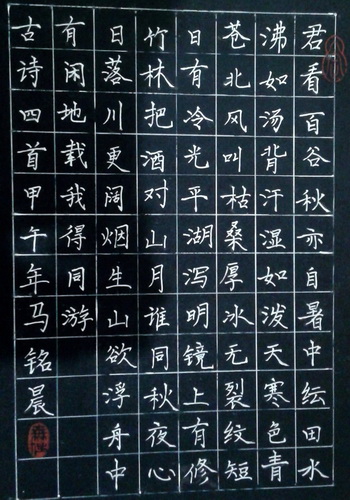 君看百谷秋亦自暑中结田水
沸如汤背汗湿如泼天寒色青
苍北风叫枯桑厚冰无裂纹短
日有冷光平湖泻明镜上有修
竹林把酒对山月谁同秋夜心
日落川更阔烟生山欲浮舟中
有闲地载我得同游
古诗四首甲午年马铭晨